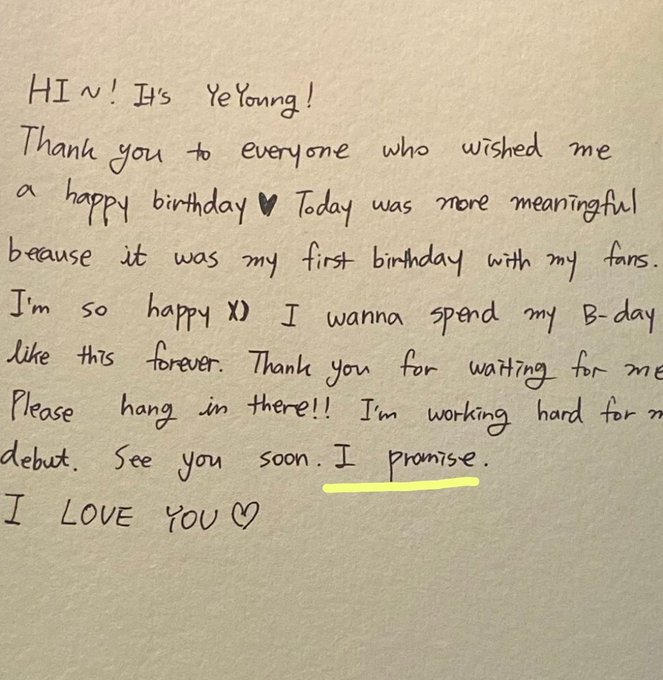 HI ~! It's YeYoung!
Thank you to everyone who wished me
a happy birthday ♥ Today was more meaningful
because it was my first birthday with my fans.
I'm so happy X) I wanna spend my B-day
like this forever. Thank you for waiting for me
Please hang in there!! I'm working hard for m
debut. See you soon. I promise.
I LOVE YOU ♡